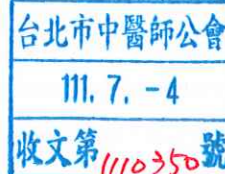 台北市中醫師公會
111. 7. -4
收文第1110350號